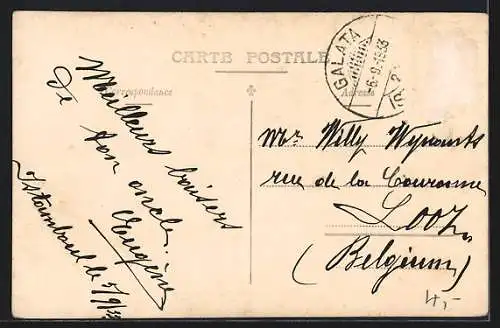 CARTE POSTALE
Correspondance
Adresse
GALATA
-6-9-1933
Meilleurs baisers
de ton oncle.
Eugène
Istamboul le 5/9/33
Mr. Willy Wynants
rue de la Couronne
Looz
(Belgium)
4,-